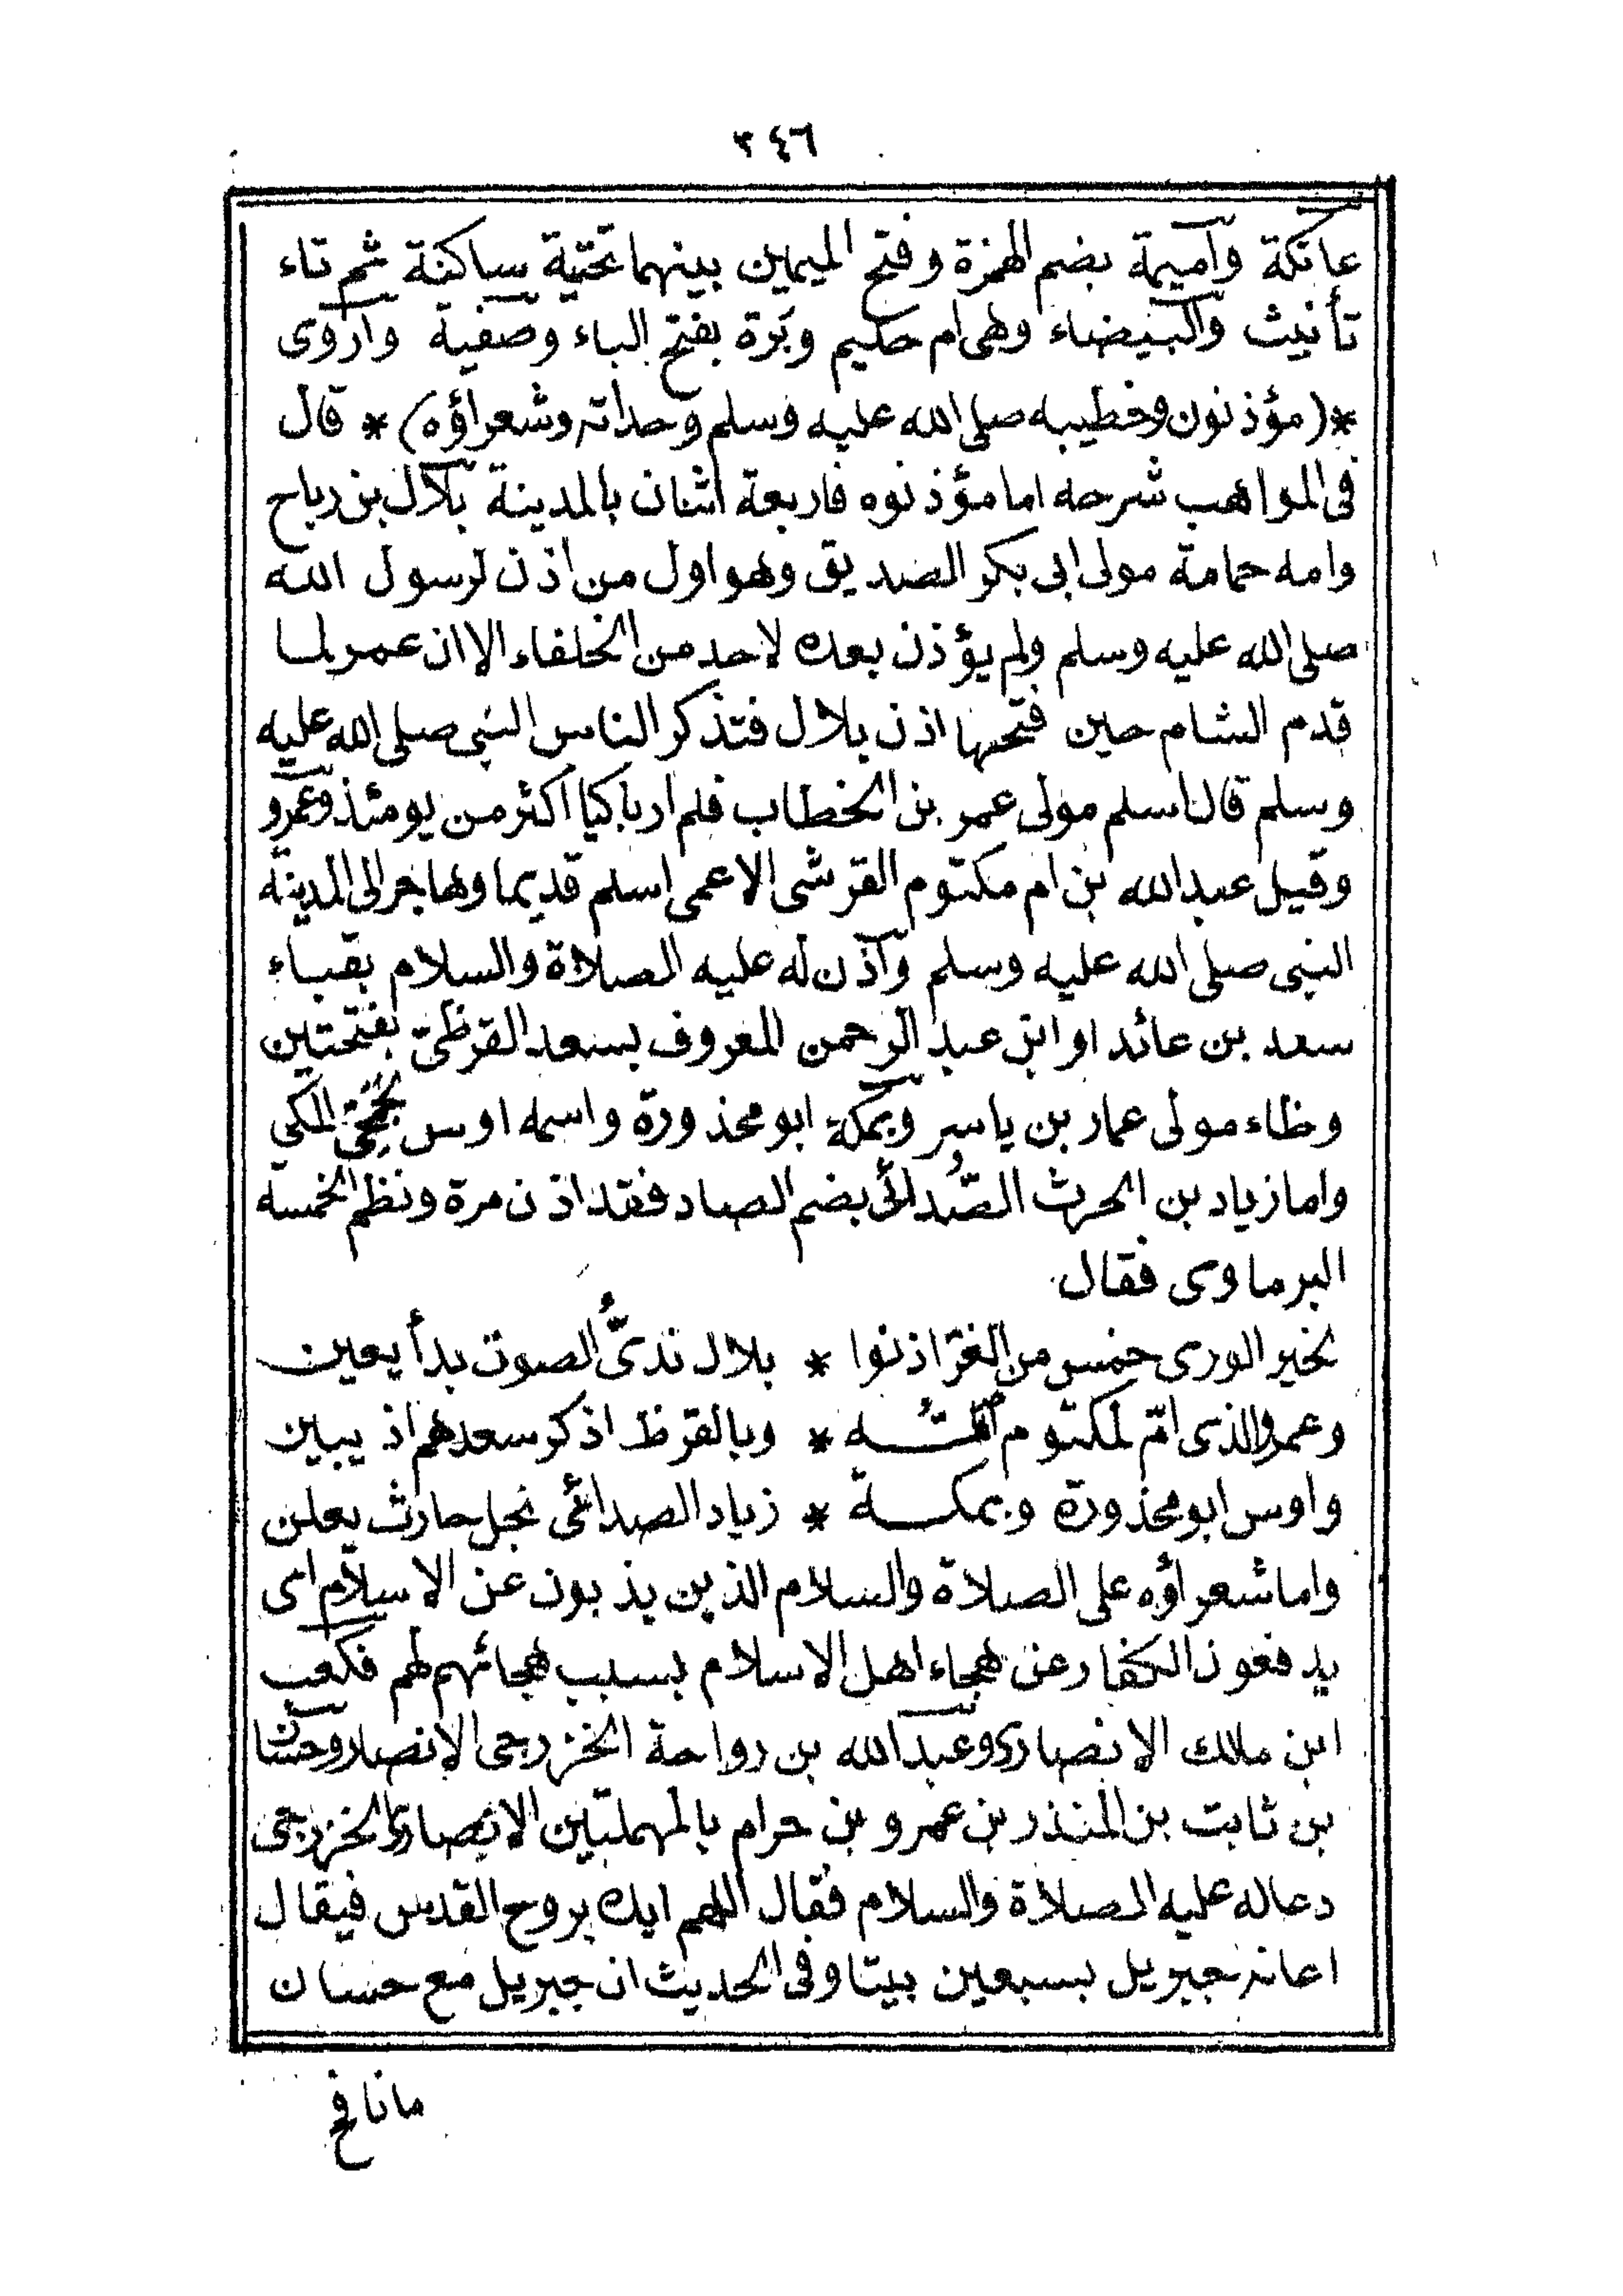 ٣٤٦
عاتكة وآميمة بضم الهمزة وفتح الميمين بينهما تحتية ساكنة ثم تاء
تأنيث والبيضاء وهى ام حكيم وبَرة بفتح الباء وصفية وآروى
*(مؤذنون وخطيبه صلى الله عليه وسلم وحداته وشعراؤه)* قال
فى المواهب شرحه اما مؤذنوه فاربعة اثنان بالمدينة بلال بن رباح
وامه حمامة مولى ابى بكر الصديق وهو اول من اذن لرسول الله
صلى الله عليه وسلم ولم يؤذن بعده لاحد من الخلفاء الا ان عمر لما
قدم الشام حين فتحها اذن بلال فتذكر الناس النبى صلى الله عليه
وسلم قال اسلم مولى عمر بن الخطاب فلم ار باكيا اكثر من يومئذ وعمرو
وقيل عبد الله بن ام مكتوم القرشى الاعمى اسلم قديما وهاجر الى المدينة
النبى صلى الله عليه وسلم وآذن له عليه الصلاة والسلام بقباء
سعد بن عائد او ابن عبد الرحمن المعروف بسعد القرظى بفتحتين
وظاء مولى عمار بن ياسر وبمكة ابو محذورة واسمه اوس الجمحى المكي
واما زياد بن الحرث الصُّدائى بضم الصاد فقد اذن مرة ونظم الخمسة
البرماوى فقال
لخير الورى خمس من الغرّ اذنوا * بلال ندىُّ الصوت بدأ يعين
وعمرو الذى امّ لمكتوم امّـــه * وبالقرظ اذكر سعدهم اذ يبين
واوس ابو محذورة وبمكـــة * زياد الصدائى نجل حارث يعلن
واما شعراؤه على الصلاة والسلام الذين يذبون عن الاسلام اى
يدفعون الكفار عن هجاء اهل الاسلام بسبب هجائهم لهم فكعب
ابن مالك الانصارى وعبد الله بن رواحة الخزرجى الانصار وحسان
بن ثابت بن المنذر بن عمرو بن حرام بالمهملتين الانصارى الخزرجى
دعاله عليه الصلاة والسلام فقال اللهم ايده بروح القدس فيقال
اعانه جبريل بسبعين بيتا وفى الحديث ان جبريل مع حسان
مانافح